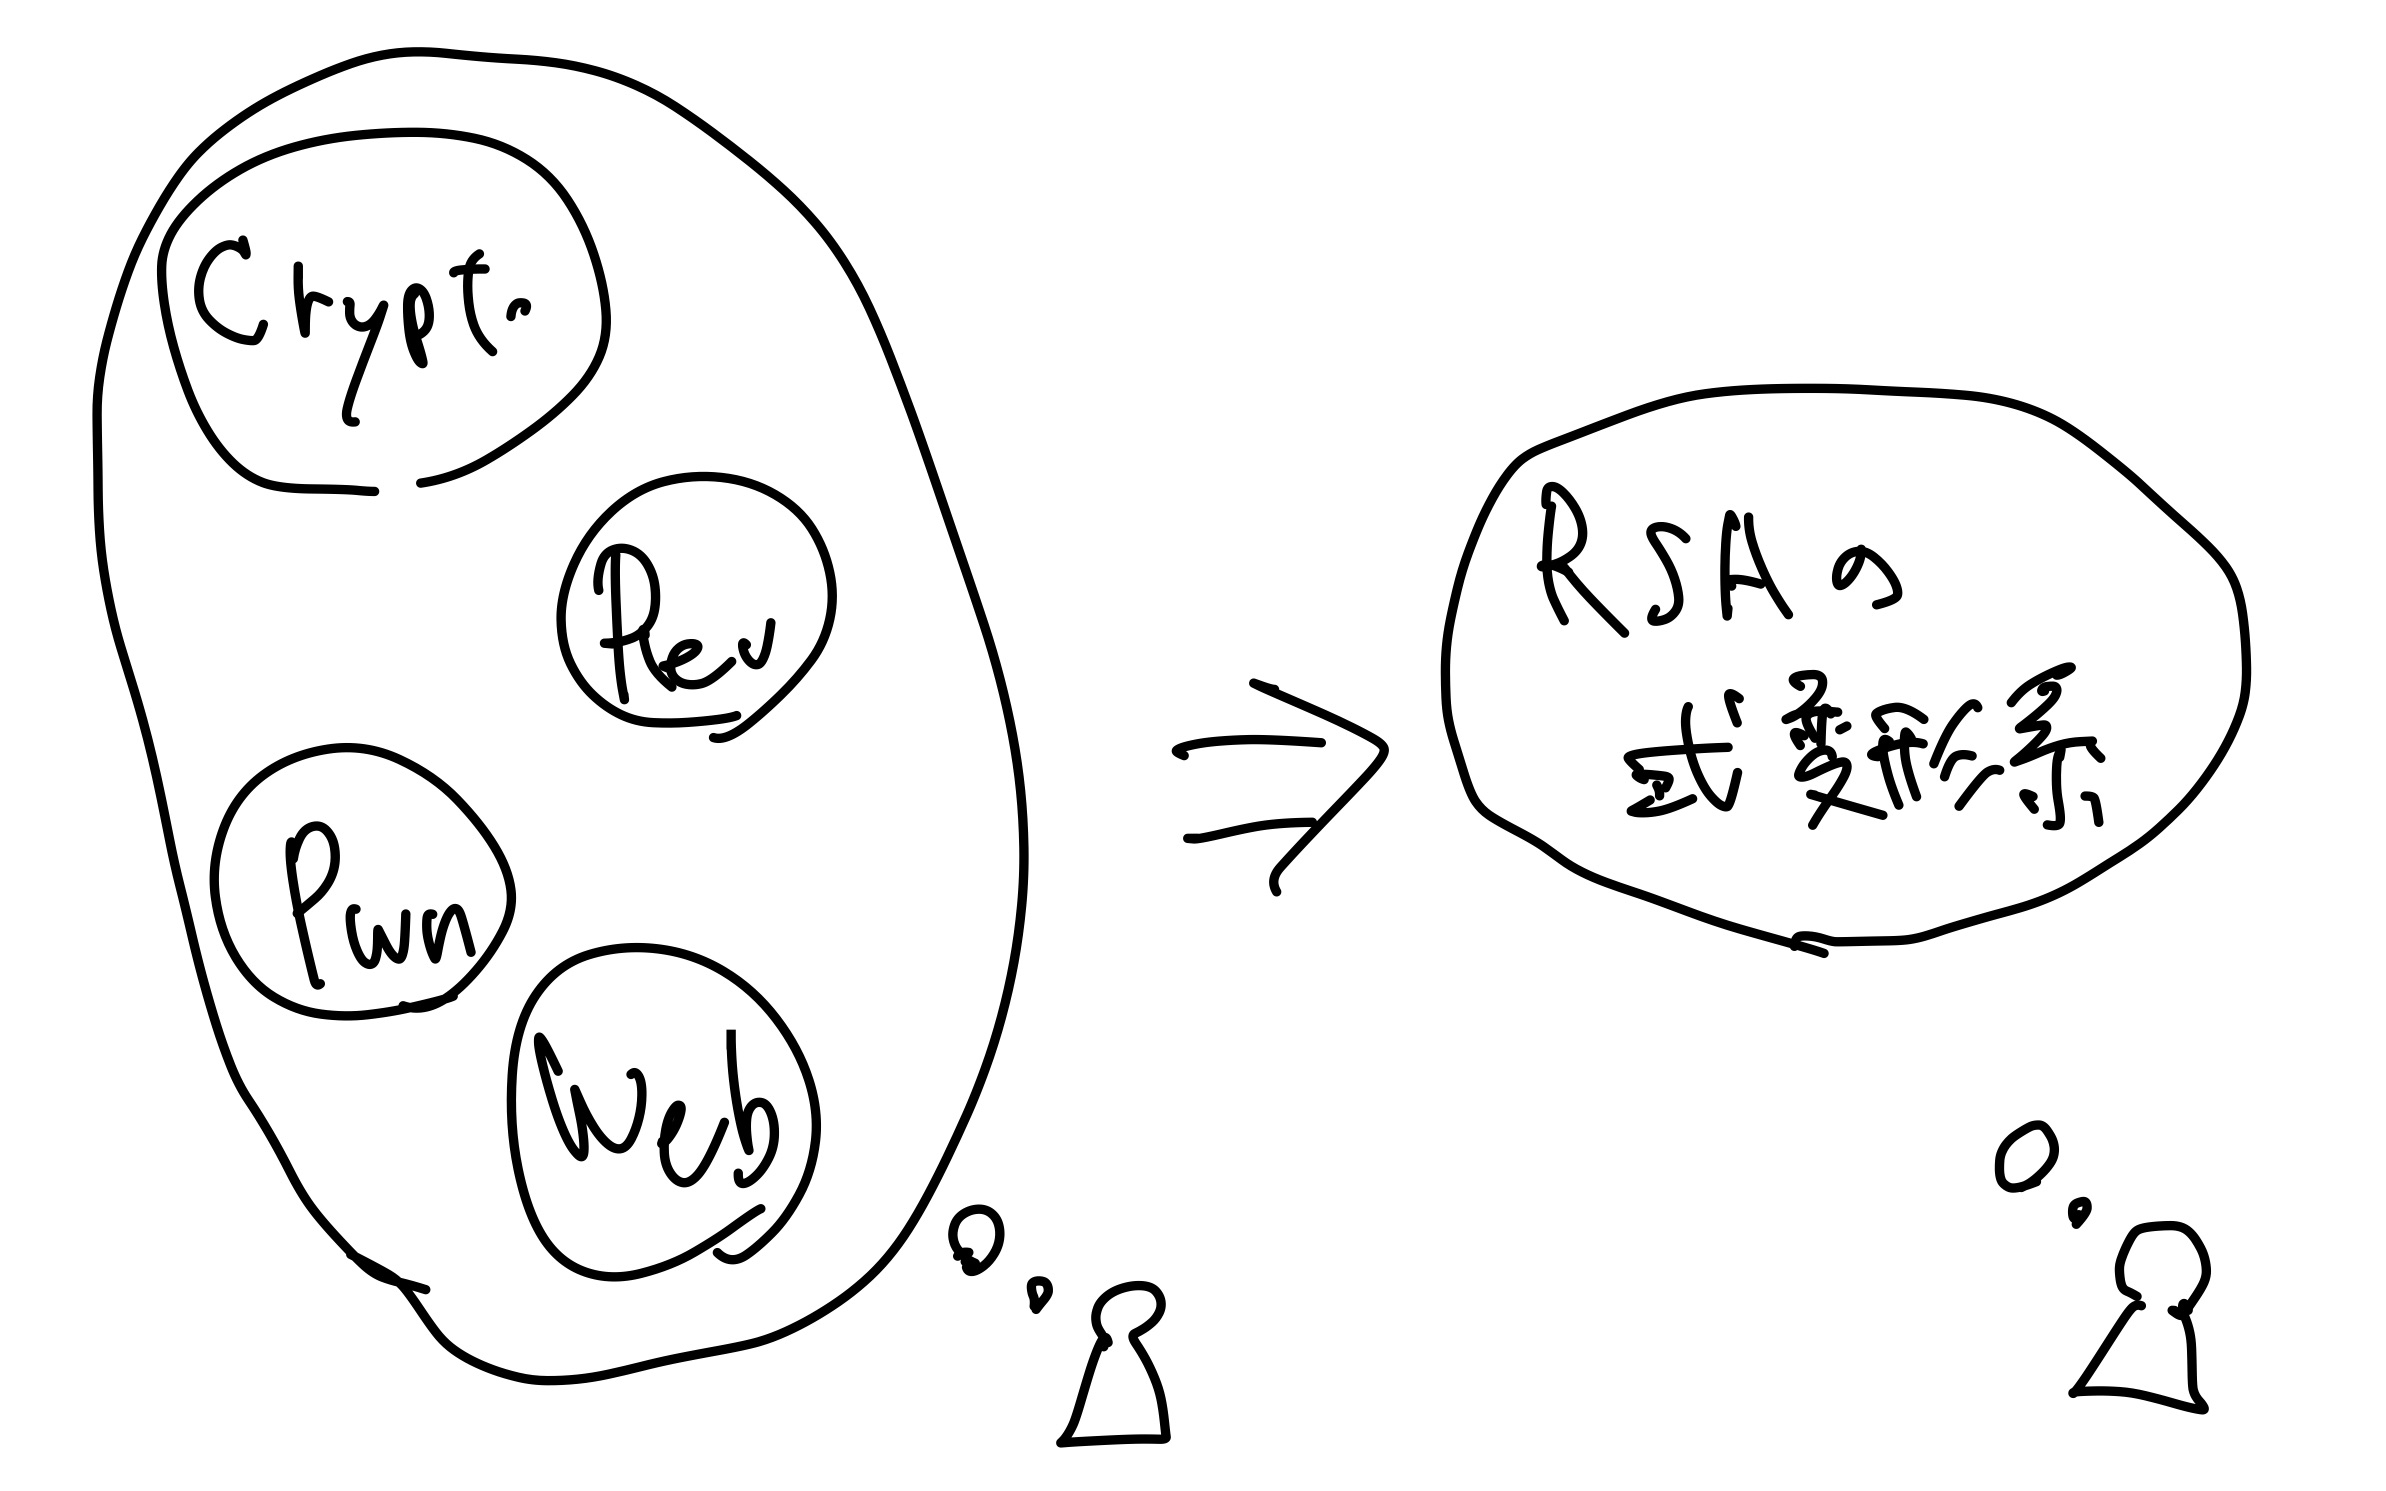 Crypto
Rev
Pwn
Web
RSAの
式変形系